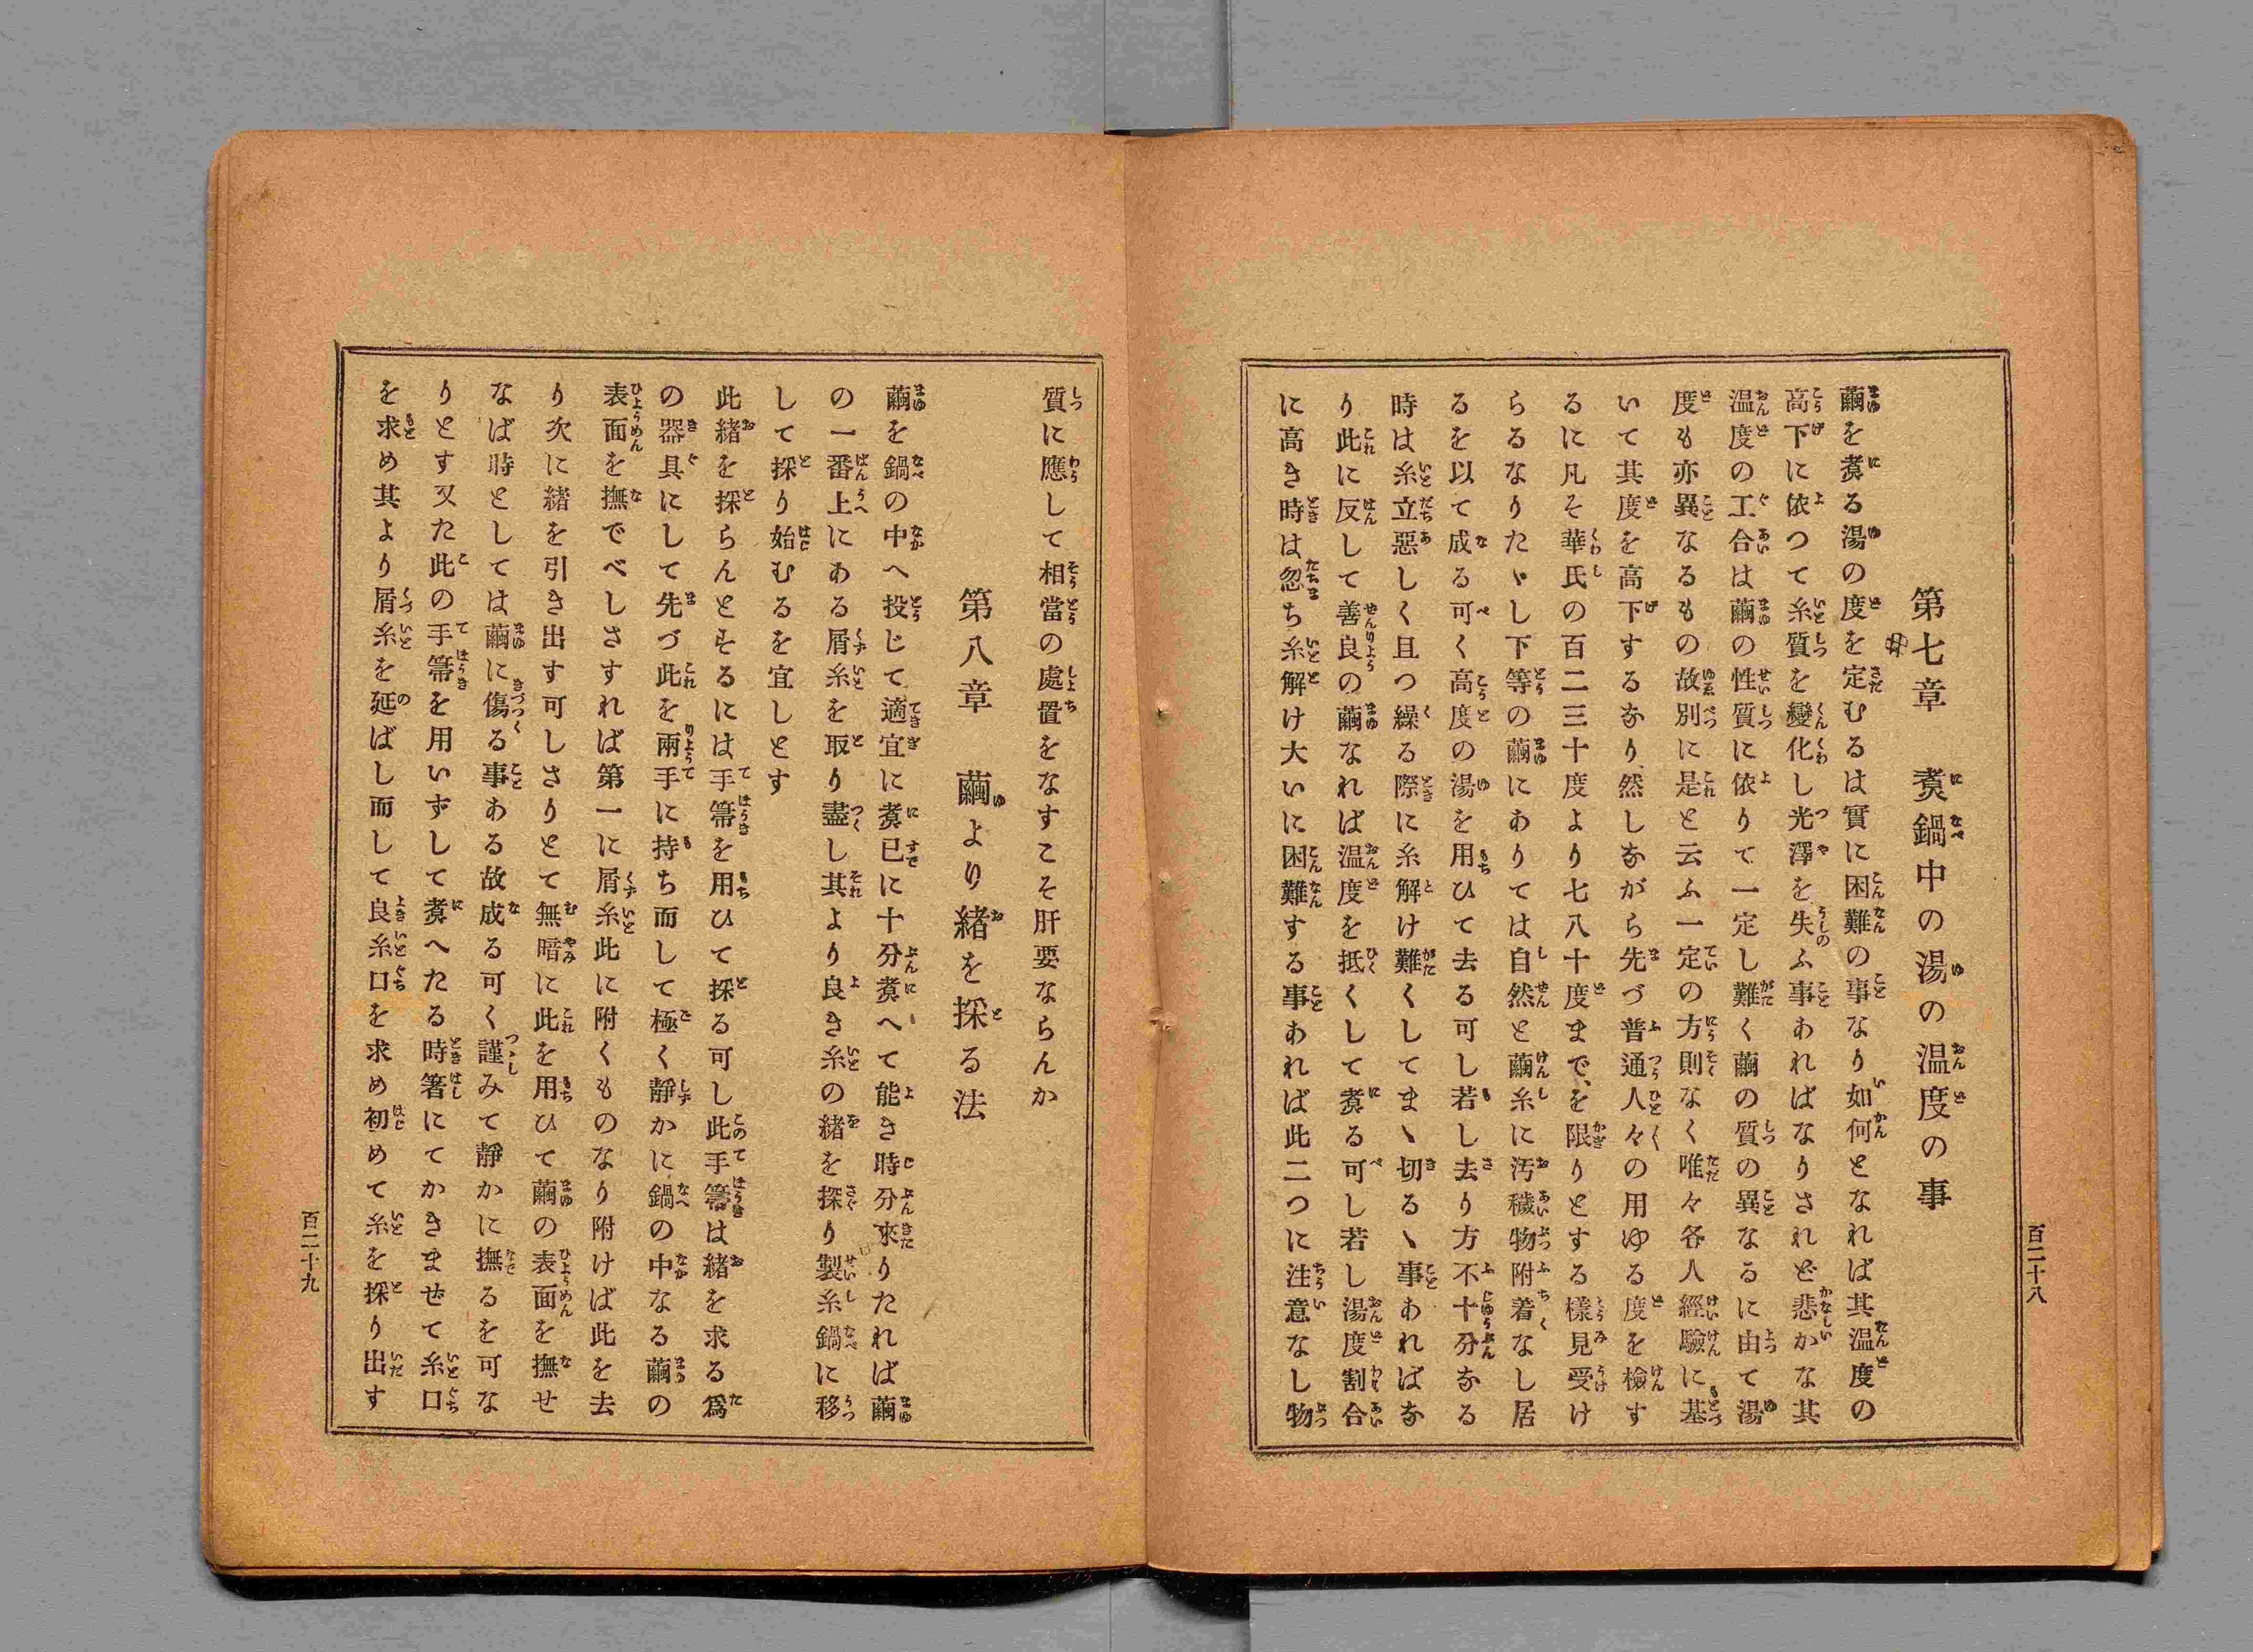 百二十八
第七章 煑鍋中の湯の温度の事
繭を煑る湯の度を定むるは實に困難の事なり如何となれば其温度の
高下に依つて糸質を變化し光澤を失ふ事あればなりされど悲かな其
温度の工合は繭の性質に依りて一定し難く繭の質の異なるに由て湯
度も亦異なるもの故別に是と云ふ一定の方則なく唯々各人經驗に基
いて其度を高下するなり然しながら先づ普通人々の用ゆる度を檢す
るに凡そ華氏の百二三十度より七八十度までを限りとする樣見受け
らるなりたゞし下等の繭にありては自然と繭糸に汚穢物附着なし居
るを以て成る可く高度の湯を用ひて去る可し若し去り方不十分なる
時は糸立惡しく且つ繰る際に糸解け難くしてまヽ切るヽ事あればな
り此に反して善良の繭なれば温度を抵くして煑る可し若し湯度割合
に高き時は忽ち糸解け大いに困難する事あれば此二つに注意なし物
質に應して相當の處置をなすこそ肝要ならんか
第八章 繭より緒を採る法
繭を鍋の中へ投じて適宜に煑已に十分煑へて能き時分來りたれば繭
の一番上にある屑糸を取り盡し其より良き糸の緒を探り製糸鍋に移
して採り始むるを宜しとす
此緒を採らんとするには手箒を用ひて採る可し此手箒は緒を求る爲
の器具にして先づ此を兩手に持ち而して極く靜かに鍋の中なる繭の
表面を撫でべしさすれば第一に屑糸此に附くものなり附けば此を去
り次に緒を引き出す可しさりとて無暗に此を用ひて繭の表面を撫せ
なば時としては繭に傷る事ある故成る可く謹みて靜かに撫るを可な
りとす又た此の手箒を用いずして煑へたる時箸にてかきませて糸口
を求め其より屑糸を延ばし而して良糸口を求め初めて糸を採り出す
百二十九